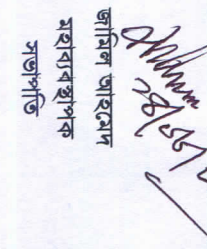 জামিল আহমেদ
মহাব্যবস্থাপক
সভাপতি